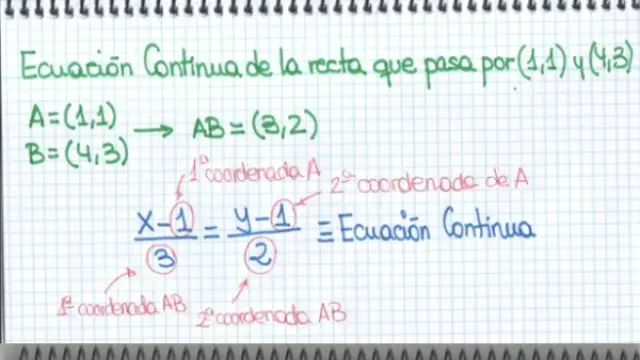 Ecuación Continua de la recta que pasa por (1,1) y (4,3)
A=(1,1)
B=(4,3)
→ AB=(3,2)
1º coordenada A
2º coordenada de A
x-1/3 = y-1/2 ≡ Ecuación Continua
1ª coordenada AB
2º coordenada AB